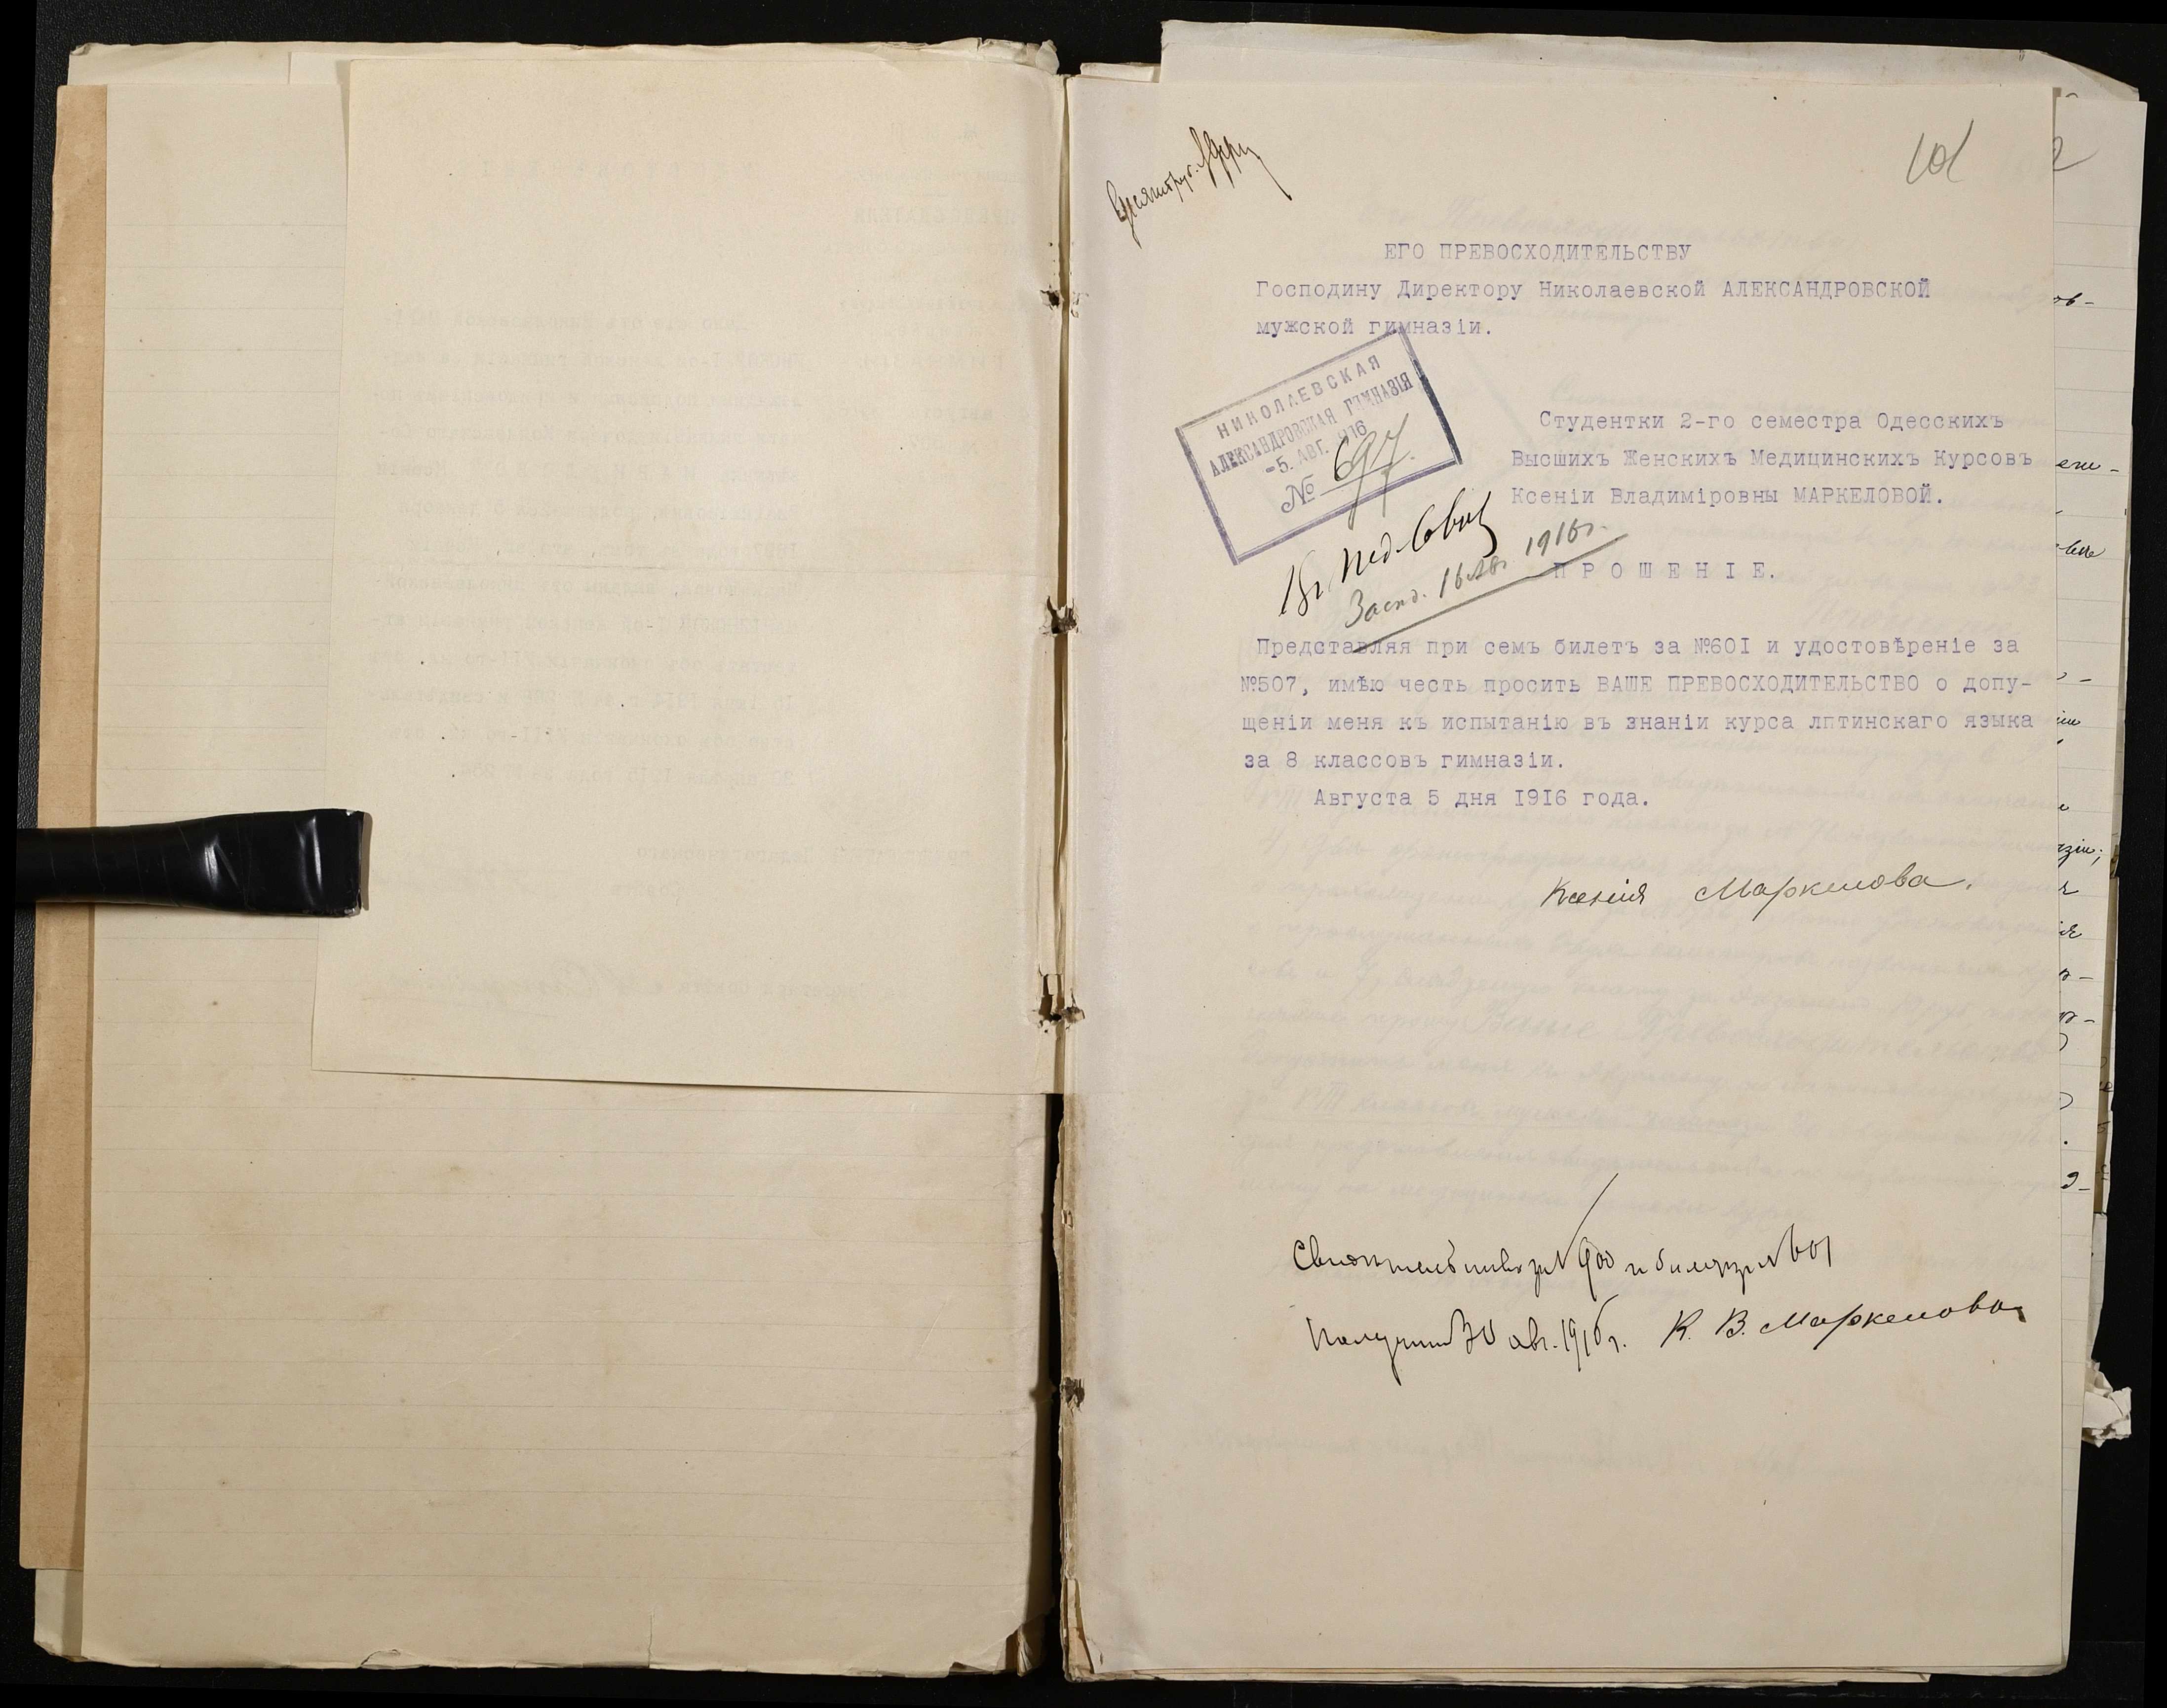 101
ЕГО ПРЕВОСХОДИТЕЛЬСТВУ
Господину Директору Николаевской АЛЕКСАНДРОВСКОЙ
мужской гимназіи.
НИКОЛАЕВСКАЯ
АЛЕКСАНДРОВСКАЯ ГИМНАЗІЯ
-5. АВГ. 916
№ 697
Студентки 2-го семестра Одесскихъ
Высшихъ Женскихъ Медицинскихъ Курсовъ
Ксеніи Владиміровны МАРКЕЛОВОЙ.
Засѣд. 16 Авг. 1916г.
ПРОШЕНІЕ.
Представляя при семъ билетъ за №60I и удостовѣреніе за
№507, имѣю честь просить ВАШЕ ПРЕВОСХОДИТЕЛЬСТВО о допу-
щеніи меня къ испытанію въ знаніи курса лптинскаго языка
за 8 классовъ гимназіи.
Августа 5 дня I9I6 года.
Ксенія Маркелова.
Свидѣтельство за № 900 и билетъ за № 601
получила 30 авг. 1916г. К. В. Маркелова